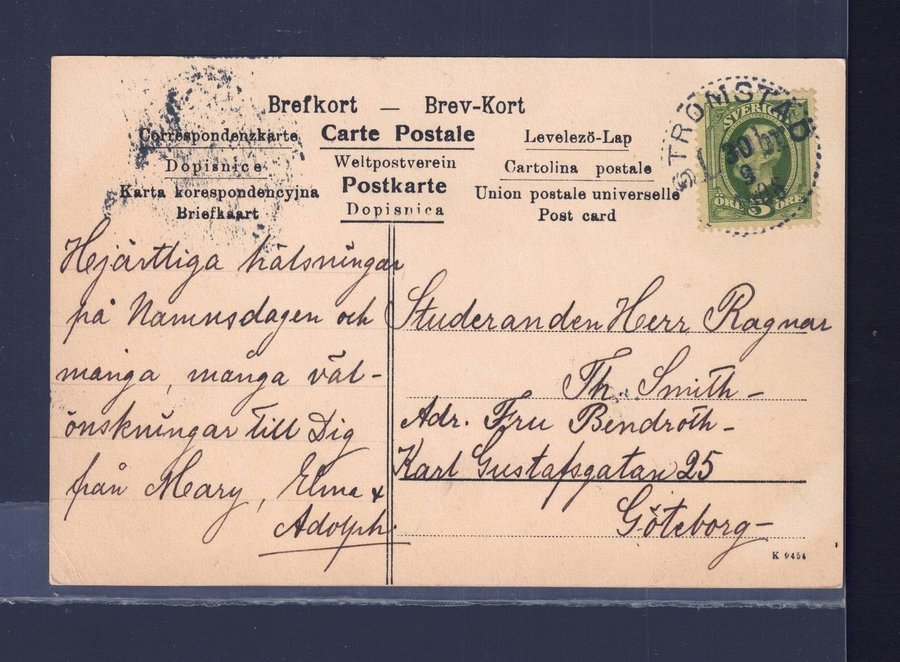 Brefkort — Brev-Kort
Correspondenzkarte Carte Postale Levelező-Lap
Dopisnice Weltpostverein Cartolina postale
Karta korespondencyjna Postkarte Union postale universelle
Briefkaart Dopisnica Post card
STRÖMSTAD
30
9
SVERIGE
ÖRE 5 ÖRE
Hjärtliga hälsningar
på Namnsdagen och
många, många väl-
önskningar till Dig
från Mary, Elma &
Adolph.
Studeranden Herr Ragnar
Th. Smith-
Adr. Fru Bendroth-
Karl Gustafsgatan 25
Göteborg-
K 9454